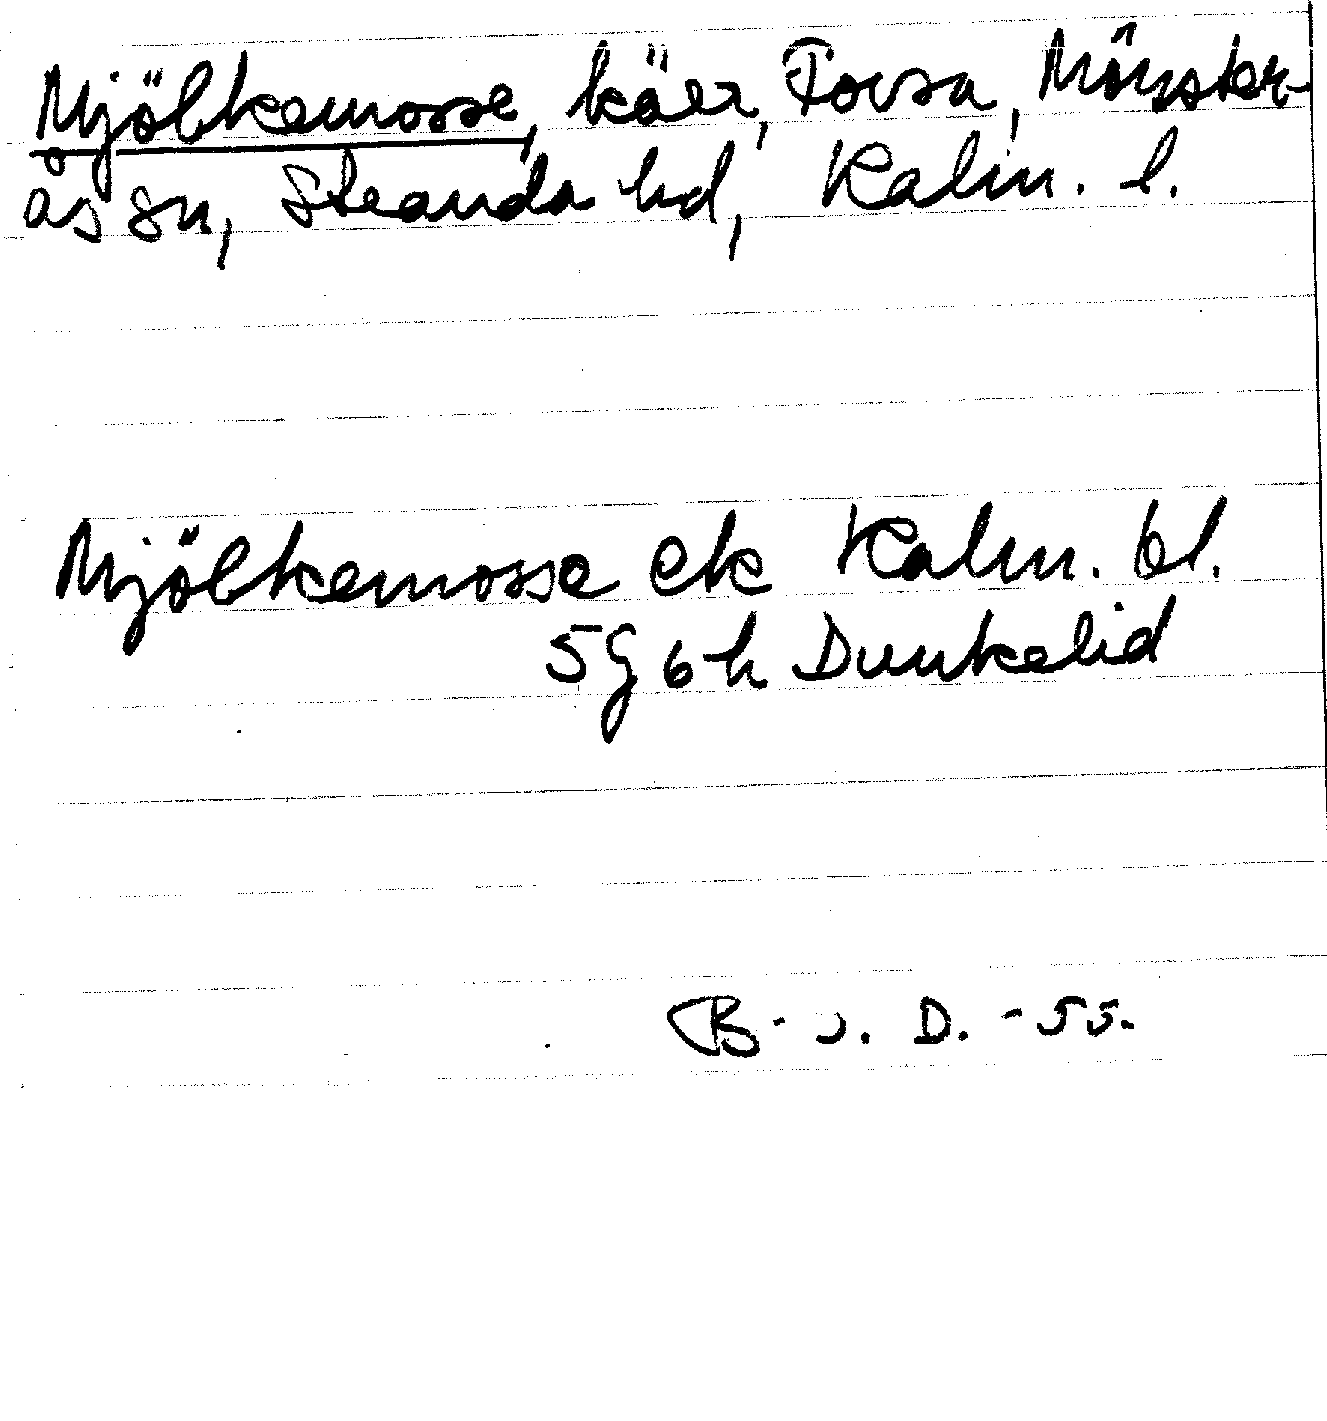 Mjölkemosse, kärr, Forsa, Mönster-
ås sn, Stranda hd, Kalm. l.
Mjölkemosse ek Kalm. bl.
5 G 6 h Dunkelid
B-s. D. -55.